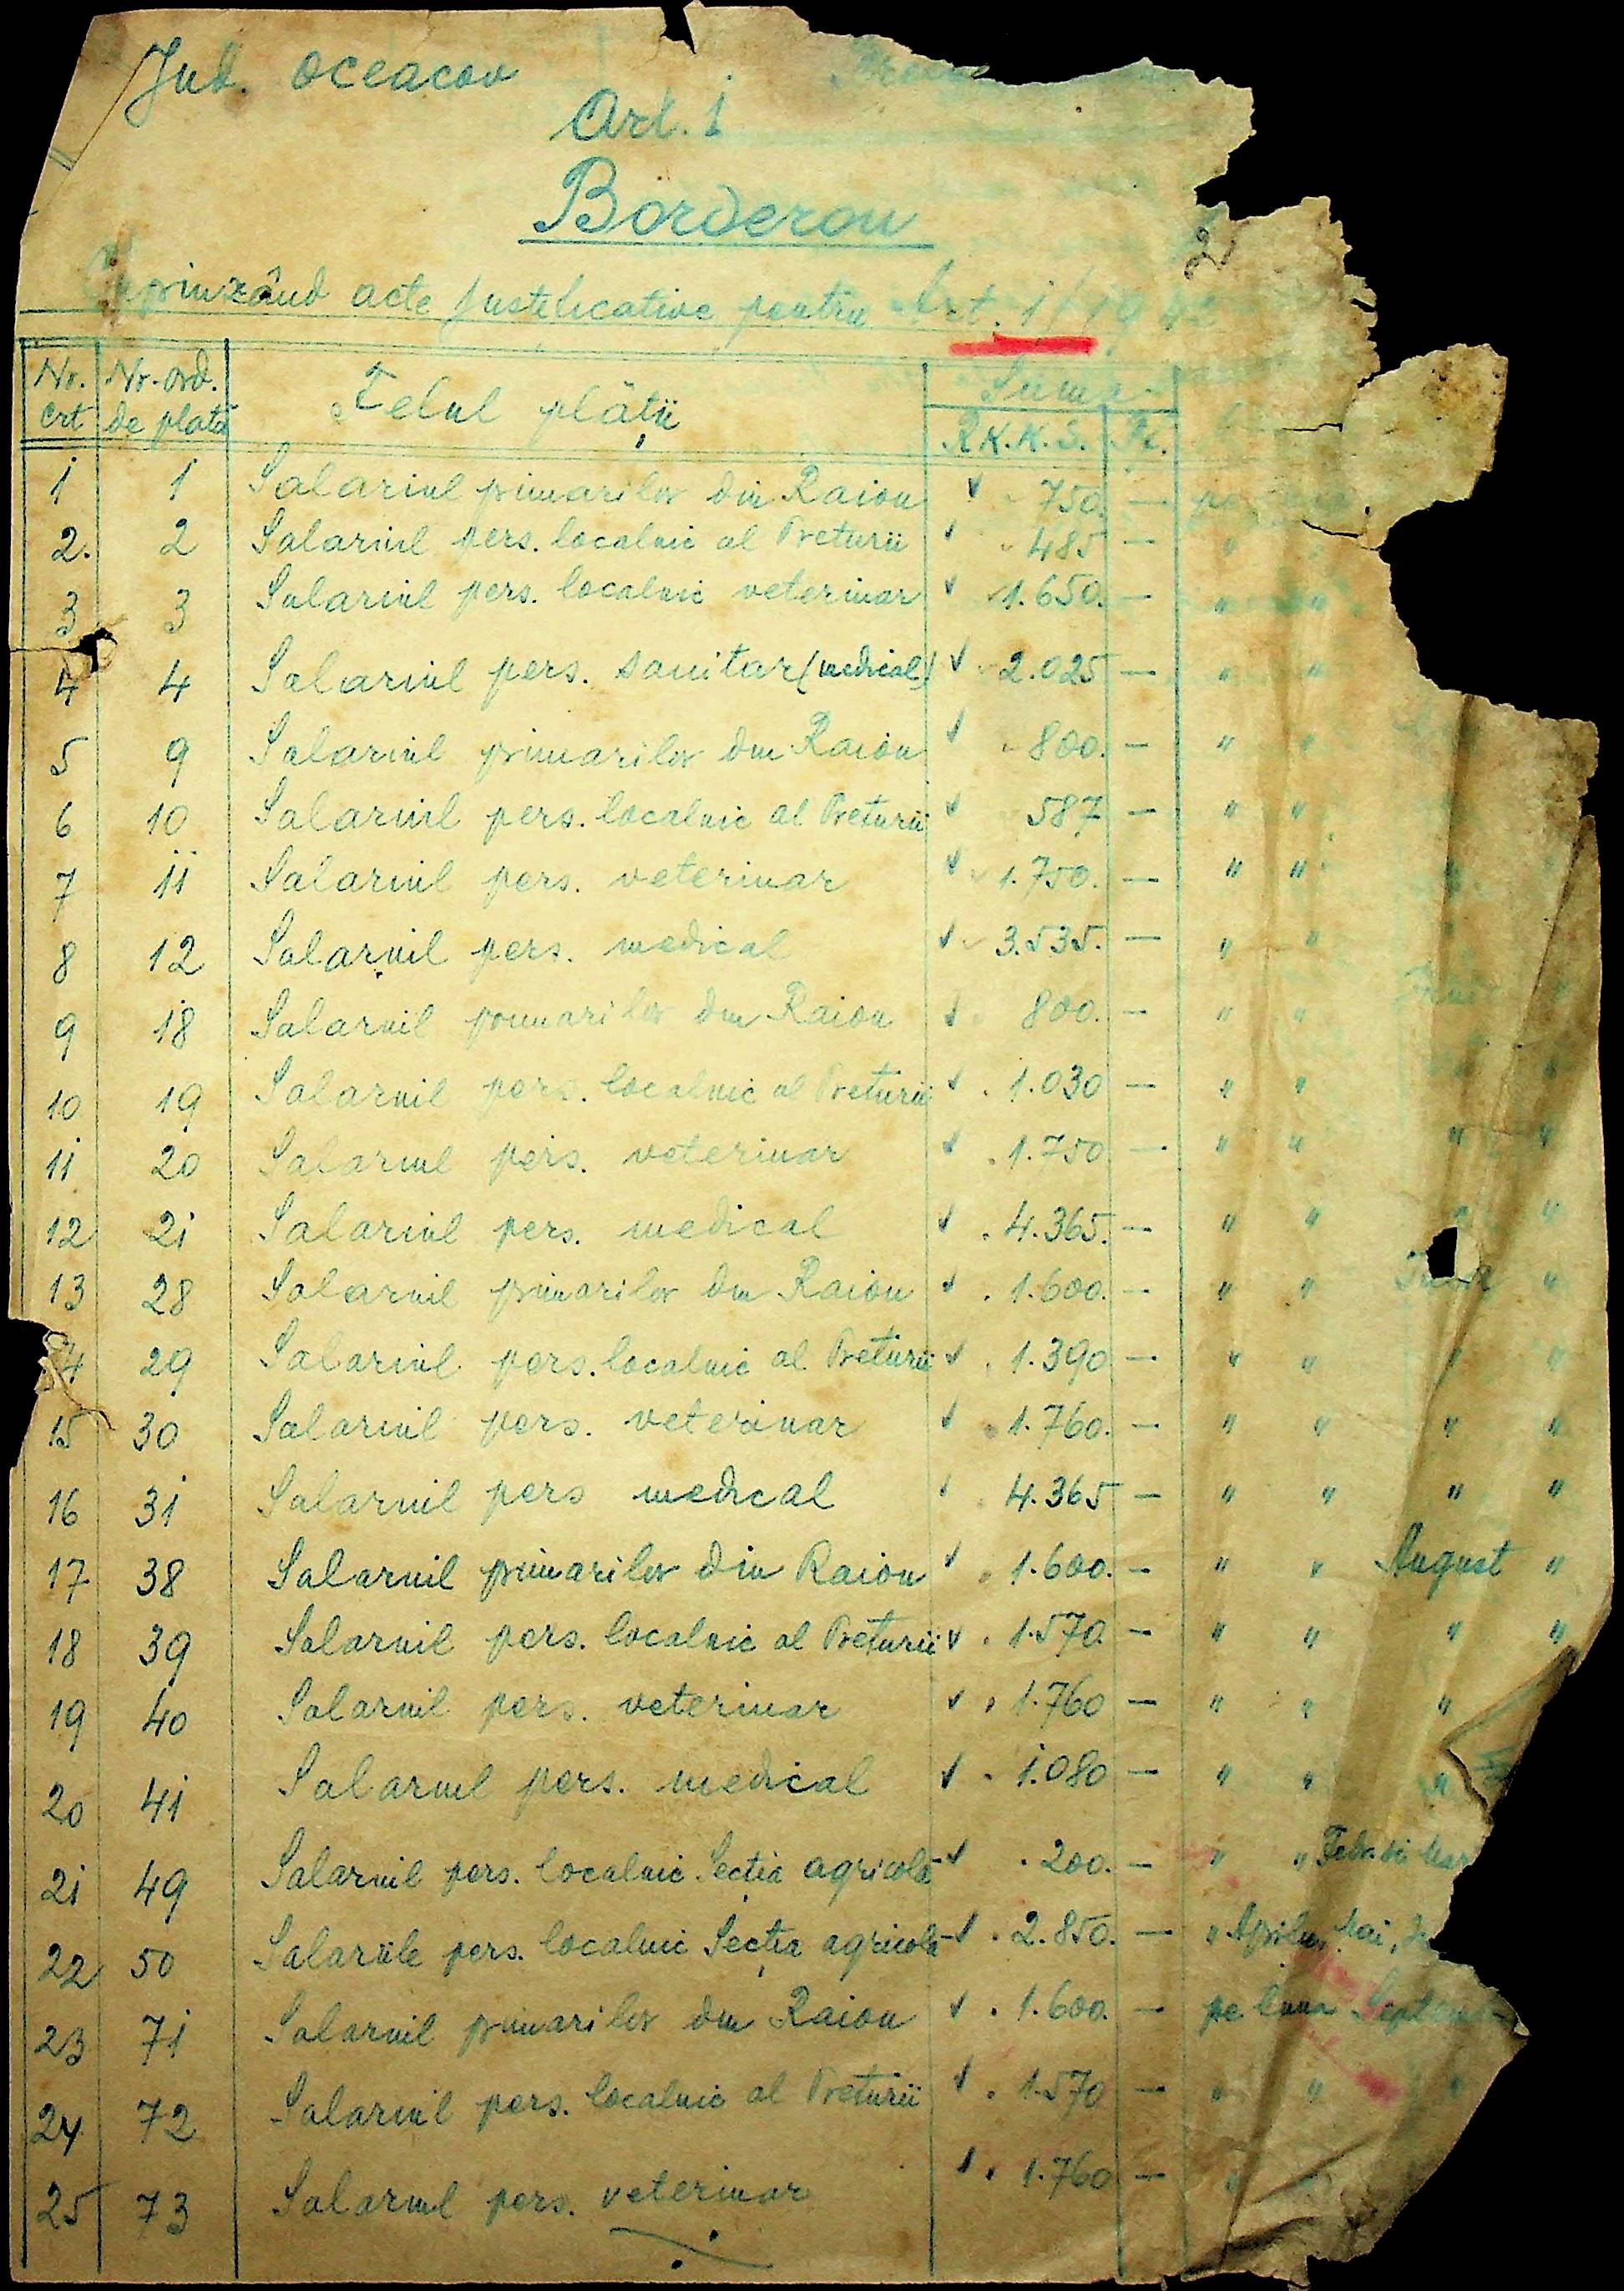 Jud. Oceacov
Art. 1
Borderou
2
Cuprinzând acte justificative pentru Art. 1/1942
Nr. crt Nr. ord. de plată Felul plății Suma R.K.K.S.
1 1 Salariul primarilor din Raion 750. —
2. 2 Salariul pers. localnic al Preturii 485 — " "
3 3 Salariul pers. localnic veterinar 1.650. — " "
4 4 Salariul pers. sanitar (medical) 2.025 — " "
5 9 Salariul primarilor din Raion 800. — " "
6 10 Salariul pers. localnic al Preturii 587 — " "
7 11 Salariul pers. veterinar 1.750. — " "
8 12 Salariul pers. medical 3.535. — " "
9 18 Salariul primarilor din Raion 800. — " "
10 19 Salariul pers. localnic al Preturii 1.030 — " "
11 20 Salariul pers. veterinar 1.750 — " " " "
12 21 Salariul pers. medical 4.365. — " " " "
13 28 Salariul primarilor din Raion 1.600. — " " "
14 29 Salariul pers. localnic al Preturii 1.390 — " " " "
15 30 Salariul pers. veterinar 1.760. — " " " "
16 31 Salariul pers medical 4.365 — " " " "
17 38 Salariul primarilor din Raion 1.600. — " " August "
18 39 Salariul pers. localnic al Preturii 1.570. — " " " "
19 40 Salariul pers. veterinar 1.760 — " " "
20 41 Salariul pers. medical 1.080 — " " "
21 49 Salariul pers. localnic Secția agricolă 200. — " " Febr. și Mar
22 50 Salariile pers. localnic Secția agricolă 2.850. — " Aprilie, Mai,
23 71 Salariul primarilor din Raion 1.600. — pe luna Septem
24 72 Salariul pers. localnic al Preturii 1.570 — " " "
25 73 Salariul pers. veterinar 1.760 — "